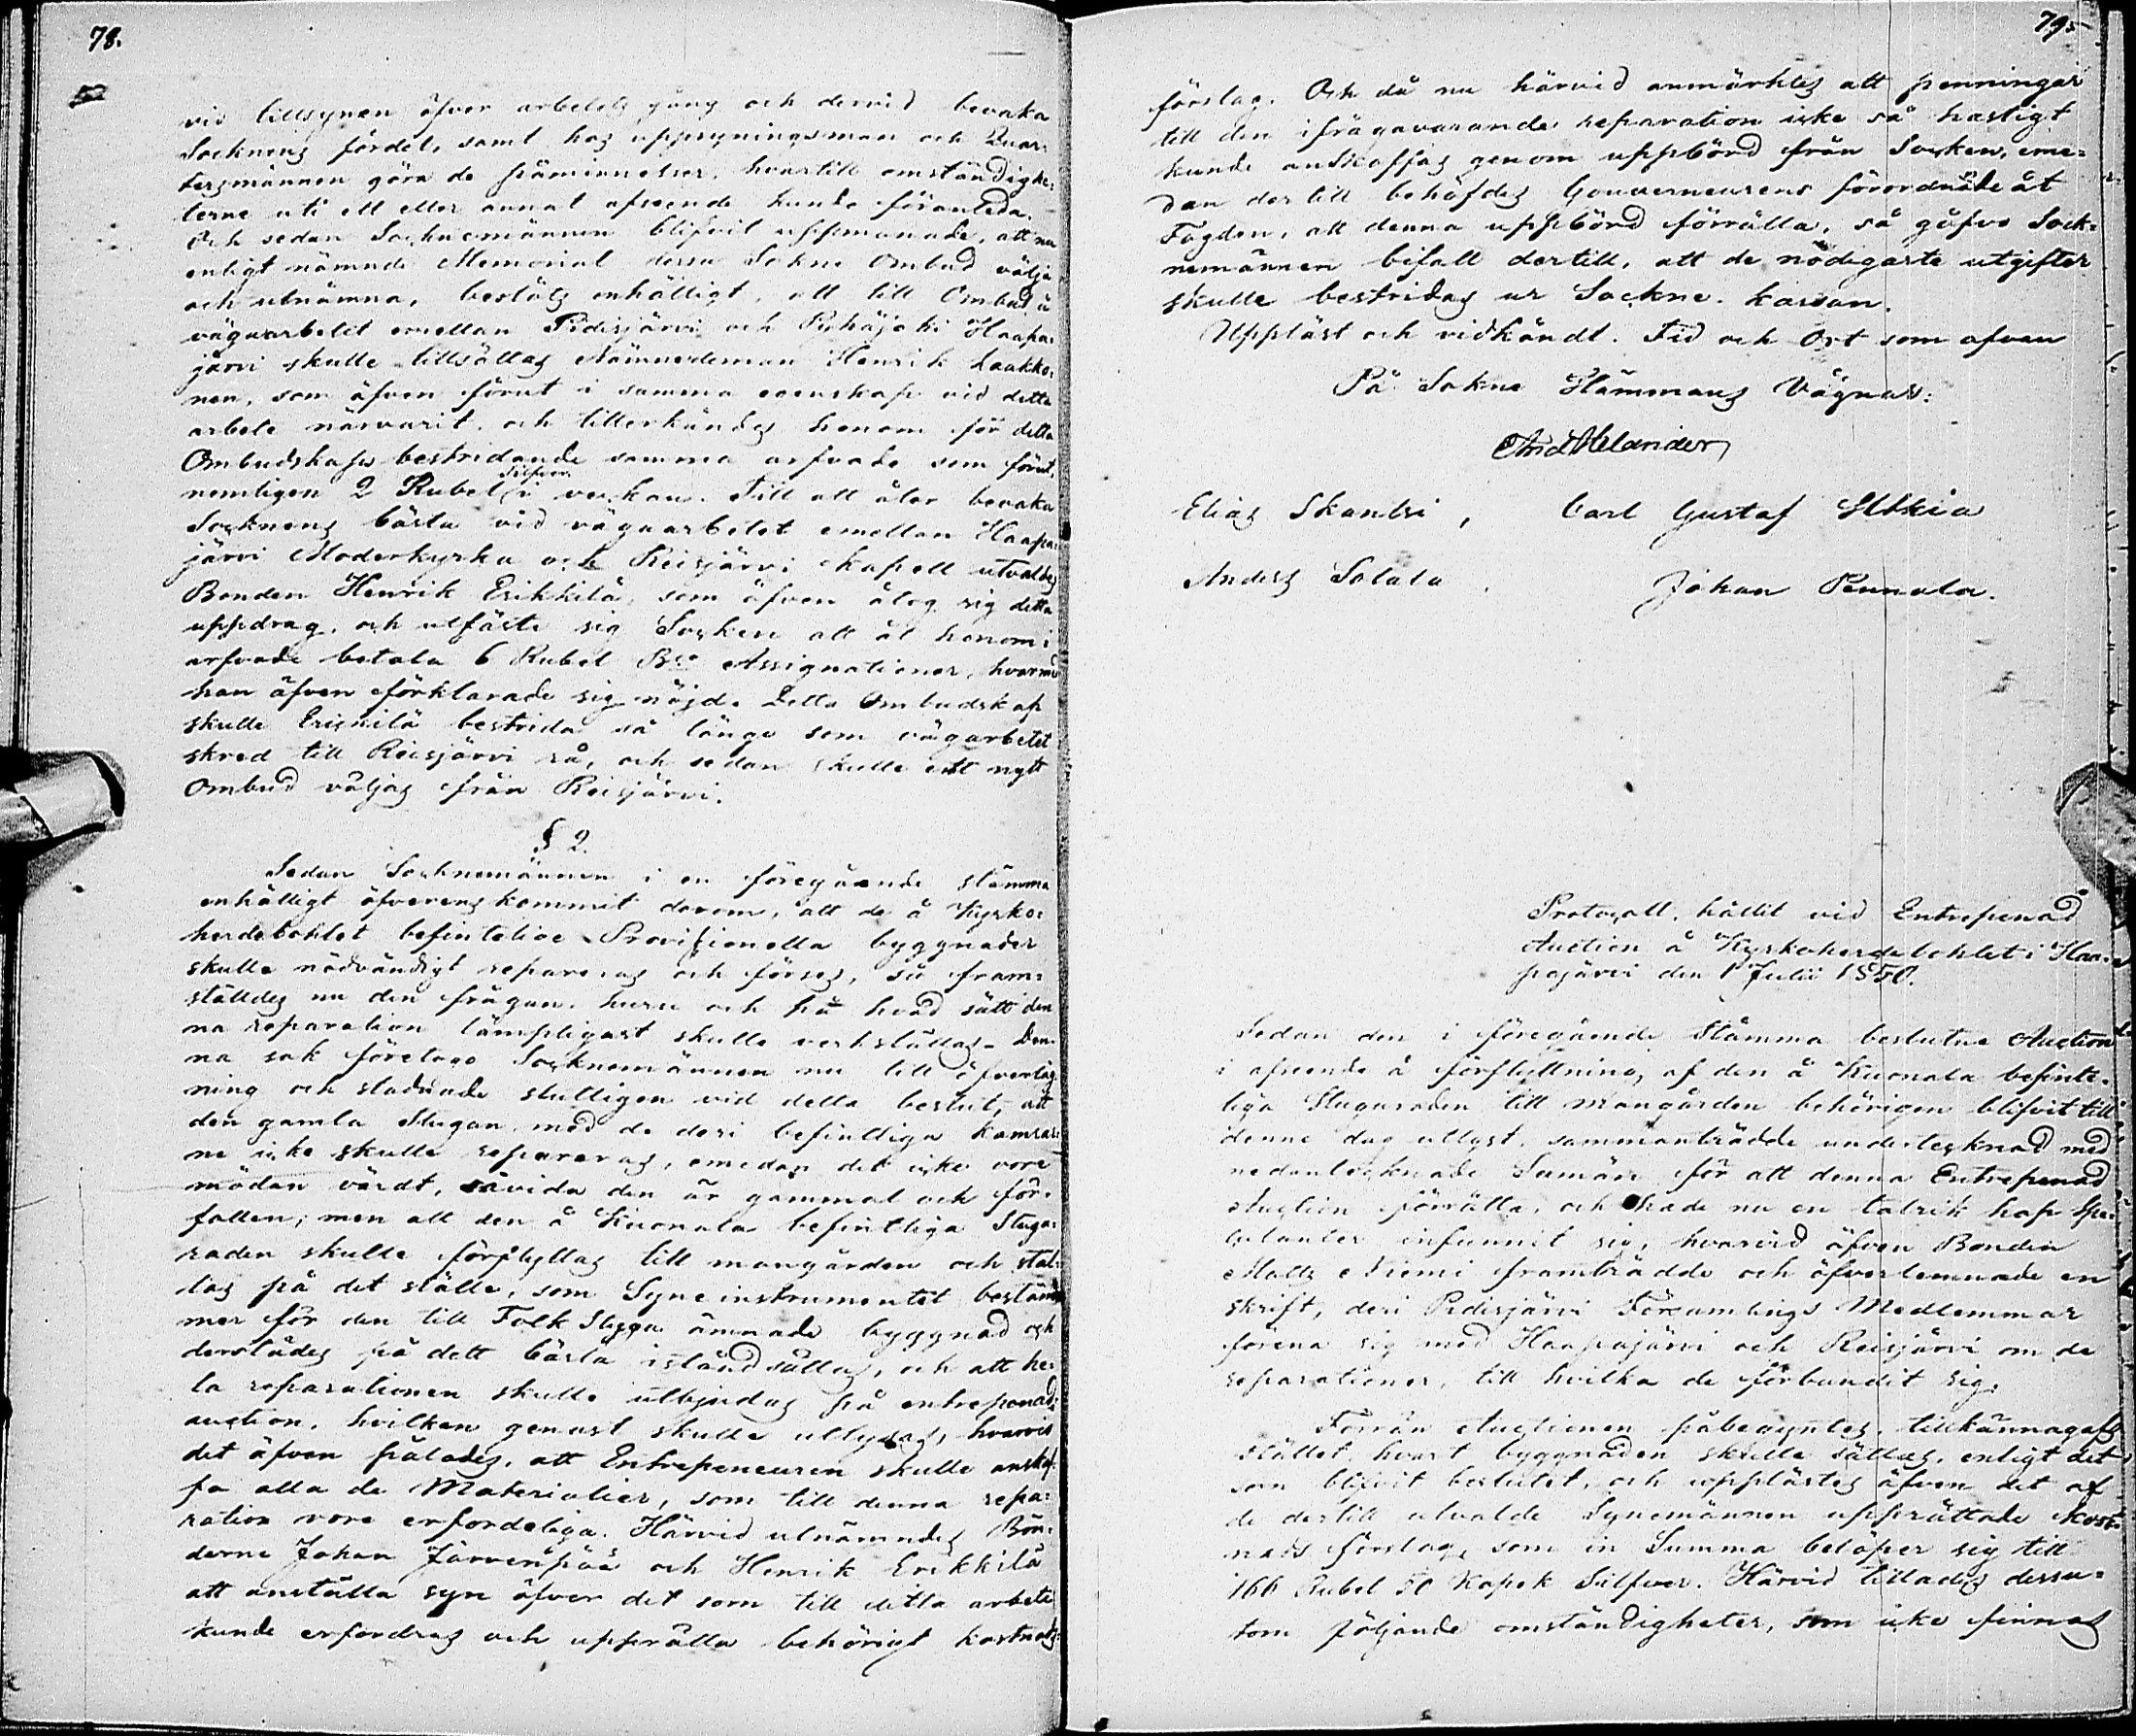 78.
vid tillsynen öfver arbetets gång och dervid bevaka
Socknens fördel, samt hos uppsyningsman och Quar=
tersmännen göra de påminnelser, hvartill omständighe=
terne uti ett eller annat afseende kunde föranleda.
Och sedan Socknemännen blifvit uppmanade, att nu
enligt nämnde Memorial dessa Sokne Ombud välja
och utnämna, beslöts enhälligt, att till Ombud å
vägaarbetet emellan Pidisjärvi och Pyhäjoki Haapa=
järvi skulle tillsättas Nämnedeman Henrik Laakko=
nen, som äfven förut i samma egenskap vid detta
arbete närvarit, och tillerkändes honom för detta
Ombudskaps bestridande samma arfvode som förut,
nemligen 2 Rubel Silfver i veckan. Till att åter bevaka
Socknens bästa vid vägaarbetet emellan Haapa=
järvi Moderkyrka och Reisjärvi Kapell utvaldes
Bonden Henrik Erikkilä, som äfven åtog sig detta
uppdrag, och utfäste sig Socken att åt honom i
arfvode betala 6 Rubel B:co Assignationer, hvarmed
han äfven förklarade sig nöjd. Detta Ombudskap
skulle Erickilä bestrida så länge som vägarbetet
skred till Reisjärvi rå, och sedan skulle ett nytt
Ombud väljas från Reisjärvi.
§ 2.
Sedan Socknemännen i en föregående stämma
enhälligt öfverenskommit derom, att de å Kyrko=
herdebohlet befintelige Provisionella byggnader
skulle nödvändigt repareras och förses, så fram=
ställdes nu den frågan, huru och på hvad sätt den
na reparation lämpligast skulle verkställas. Den=
na sak företogo Socknemännen nu till öfverläg=
ning och stadnade slutligen vid detta beslut, att
den gamla Stugan med de deri befintliga kamrar=
ne icke skulle repareras, emedan det icke vore
mödan värdt, såvida den är gammal och för=
fallen; men att den å Kuonala befintliga Stugu=
raden skulle förflyttas till mangården och stäl=
las på det ställe, som Syneinstrumentet bestäm
mer för den till Folk Stuga ämnade byggnad och
derstädes på dett bästa iståndsättas, och att he=
la reparationen skulle utbjudas på entreprenad=
auction, hvilken genast skulle utlysas, hvarvid
det äfven pålades, att Entrepeneuren skulle anskaf=
fa alla de Materialier, som till denna repa=
ration vore erfordeliga. Härvid utnämndes Bön=
derne Johan Järvenpää och Henrik Erikkilä
att anställa syn öfver det som till detta arbete
kunde erfordras och upprätta behörigt kostnads=
79.
förslag. Och då nu härvid anmärktes att penningar
till den ifrågavarande reparation icke så hastigt
kunde anskaffas genom uppbörd från Socken, eme=
dan dertill behöfdes Gouverneurens förordnade åt
Fogden, att denna uppbörd förrätta, så gåfvo Sock=
nemännen bifall dertill, att de nödigaste utgifter
skulle bestridas ur Sockne kassan.
Uppläst och vidkändt. Tid och Ort som ofvan
På Sokne Stämmans Vägnar:
And Helander
Elias Skantsi, Carl Gustaf Ståhle
Anders Salala Johan Pennala.
Protocoll, hållit vid Entrepenad
Auction å Kyrkoherdebohlet i Haa=
pajärvi den 1 Julii 1850.
Sedan den i föregående Stämma beslutne Auction
i afseende å förflyttning af den å Kuonala befinte=
liga Stuguraden till mangården behörigen blifvit till
denne dag utlyst, sammanträdde undertecknad med
nedantecknade Sumän för att denna Entrepenad
Auction förrätta, och hade nu en talrik hop Spe=
culanter infunnit sig, hvarvid äfven Bonden
Matts Niemi framträdde och öfverlemnade en
skrift, deri Pidisjärvi Församlings Medlemmar
förena sig med Haapajärvi och Reisjärvi om de
reparationer, till hvilka de förbundit sig.
Förrän Auctionen påbegyntes, tillkännagafs
stället, hvart byggnaden skulle sättas, enligt det
som blifvit beslutet, och upplästes äfven det af
de dertill utvalde Synemännen upprättade Kost=
nads förslag, som in Summa belöper sig till
166 Rubel 50 Kopek Silfver. Härvid tillades dessu=
tom följande omständigheter, som icke finnas